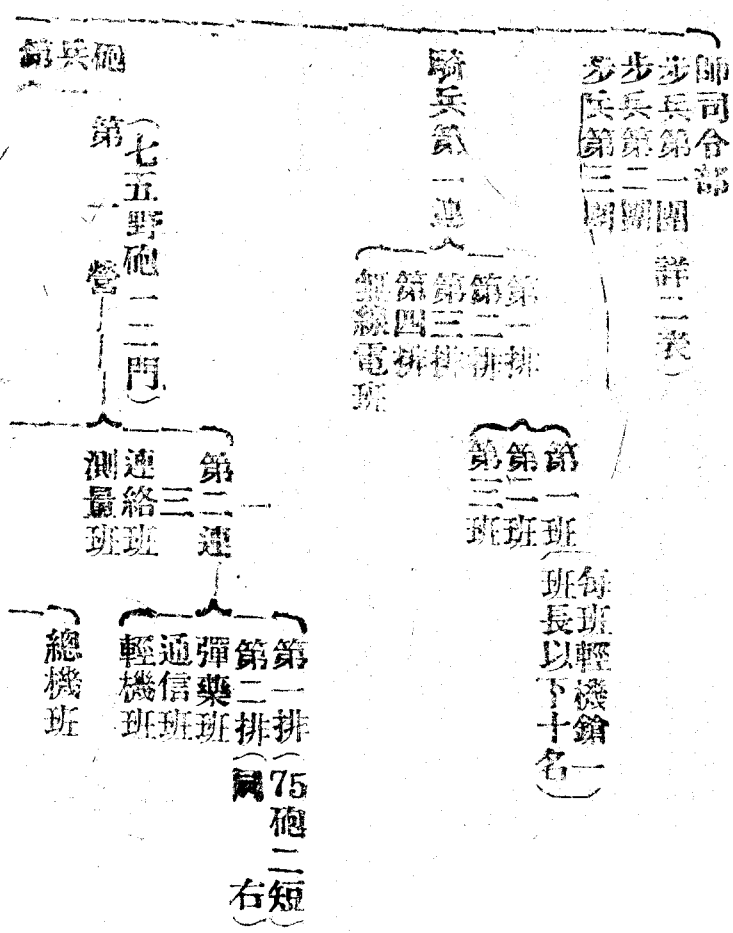 師司令部
步兵第一團（詳二表）
步兵第二團
步兵第三團
騎兵第一連
第一排
第二排
第三排
第四排
無線電班
第一班（每班輕機鎗一
班長以下十名）
第二班
第三班
砲兵第
（七五野砲一二門）
第一營
一
第二連
三
連絡班
測量班
第一排（75砲二短）
第二排（同右）
彈藥班
通信班
輕機班
總機班